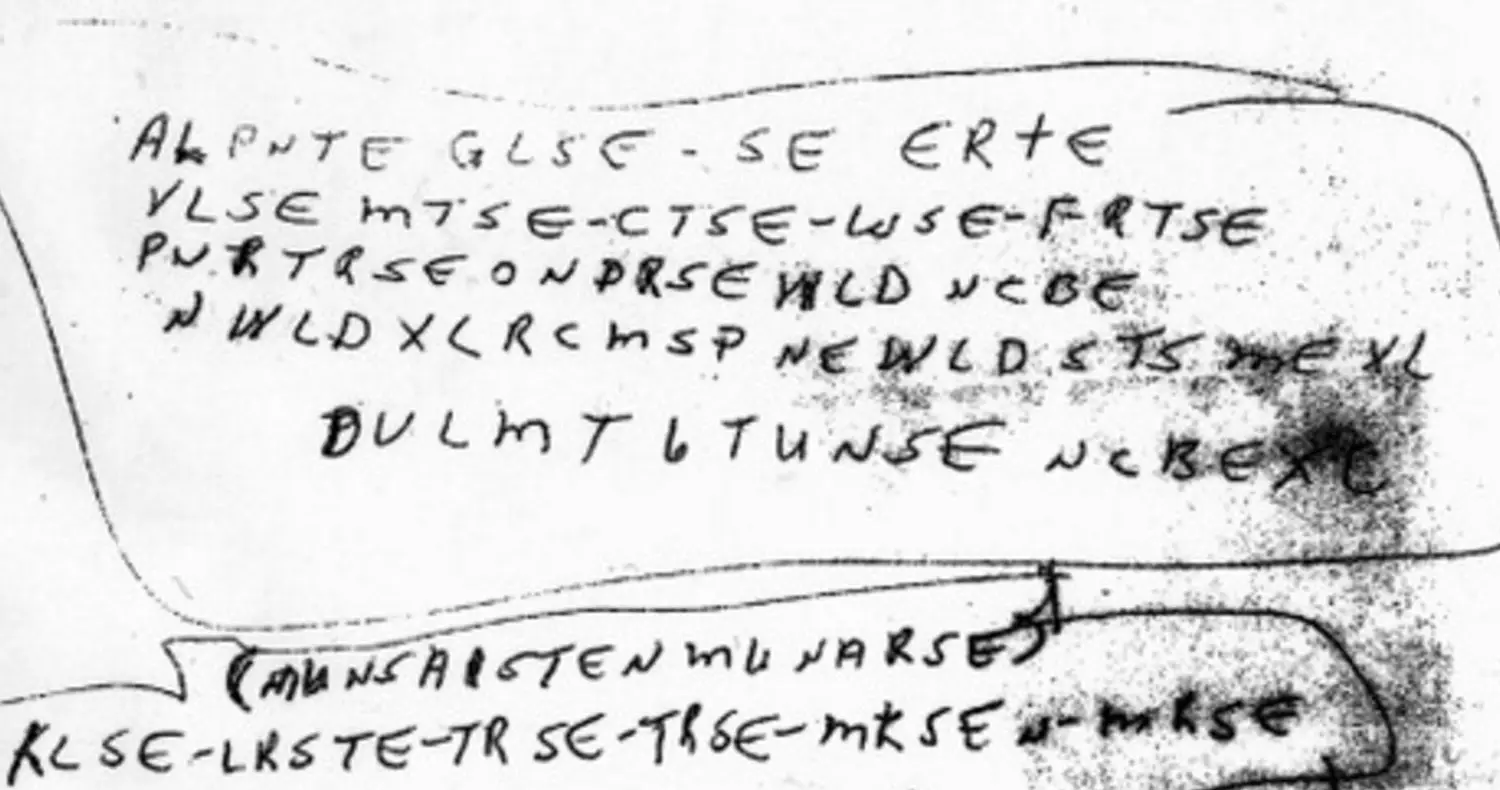 ALPNTE GLSE - SE ERTE
VLSE MTSE-CTSE-WSE-FRTSE
PNRTRSE ONDRSE WLD NCBE
N WLD XLRCMSP NEWLD STS MEXL
DULMT 6 TUNSE NCBEXC
(MUNSAISTEN MUNARSE)
KLSE-LRSTE-TRSE-TRSE-MKSEN-MRSE